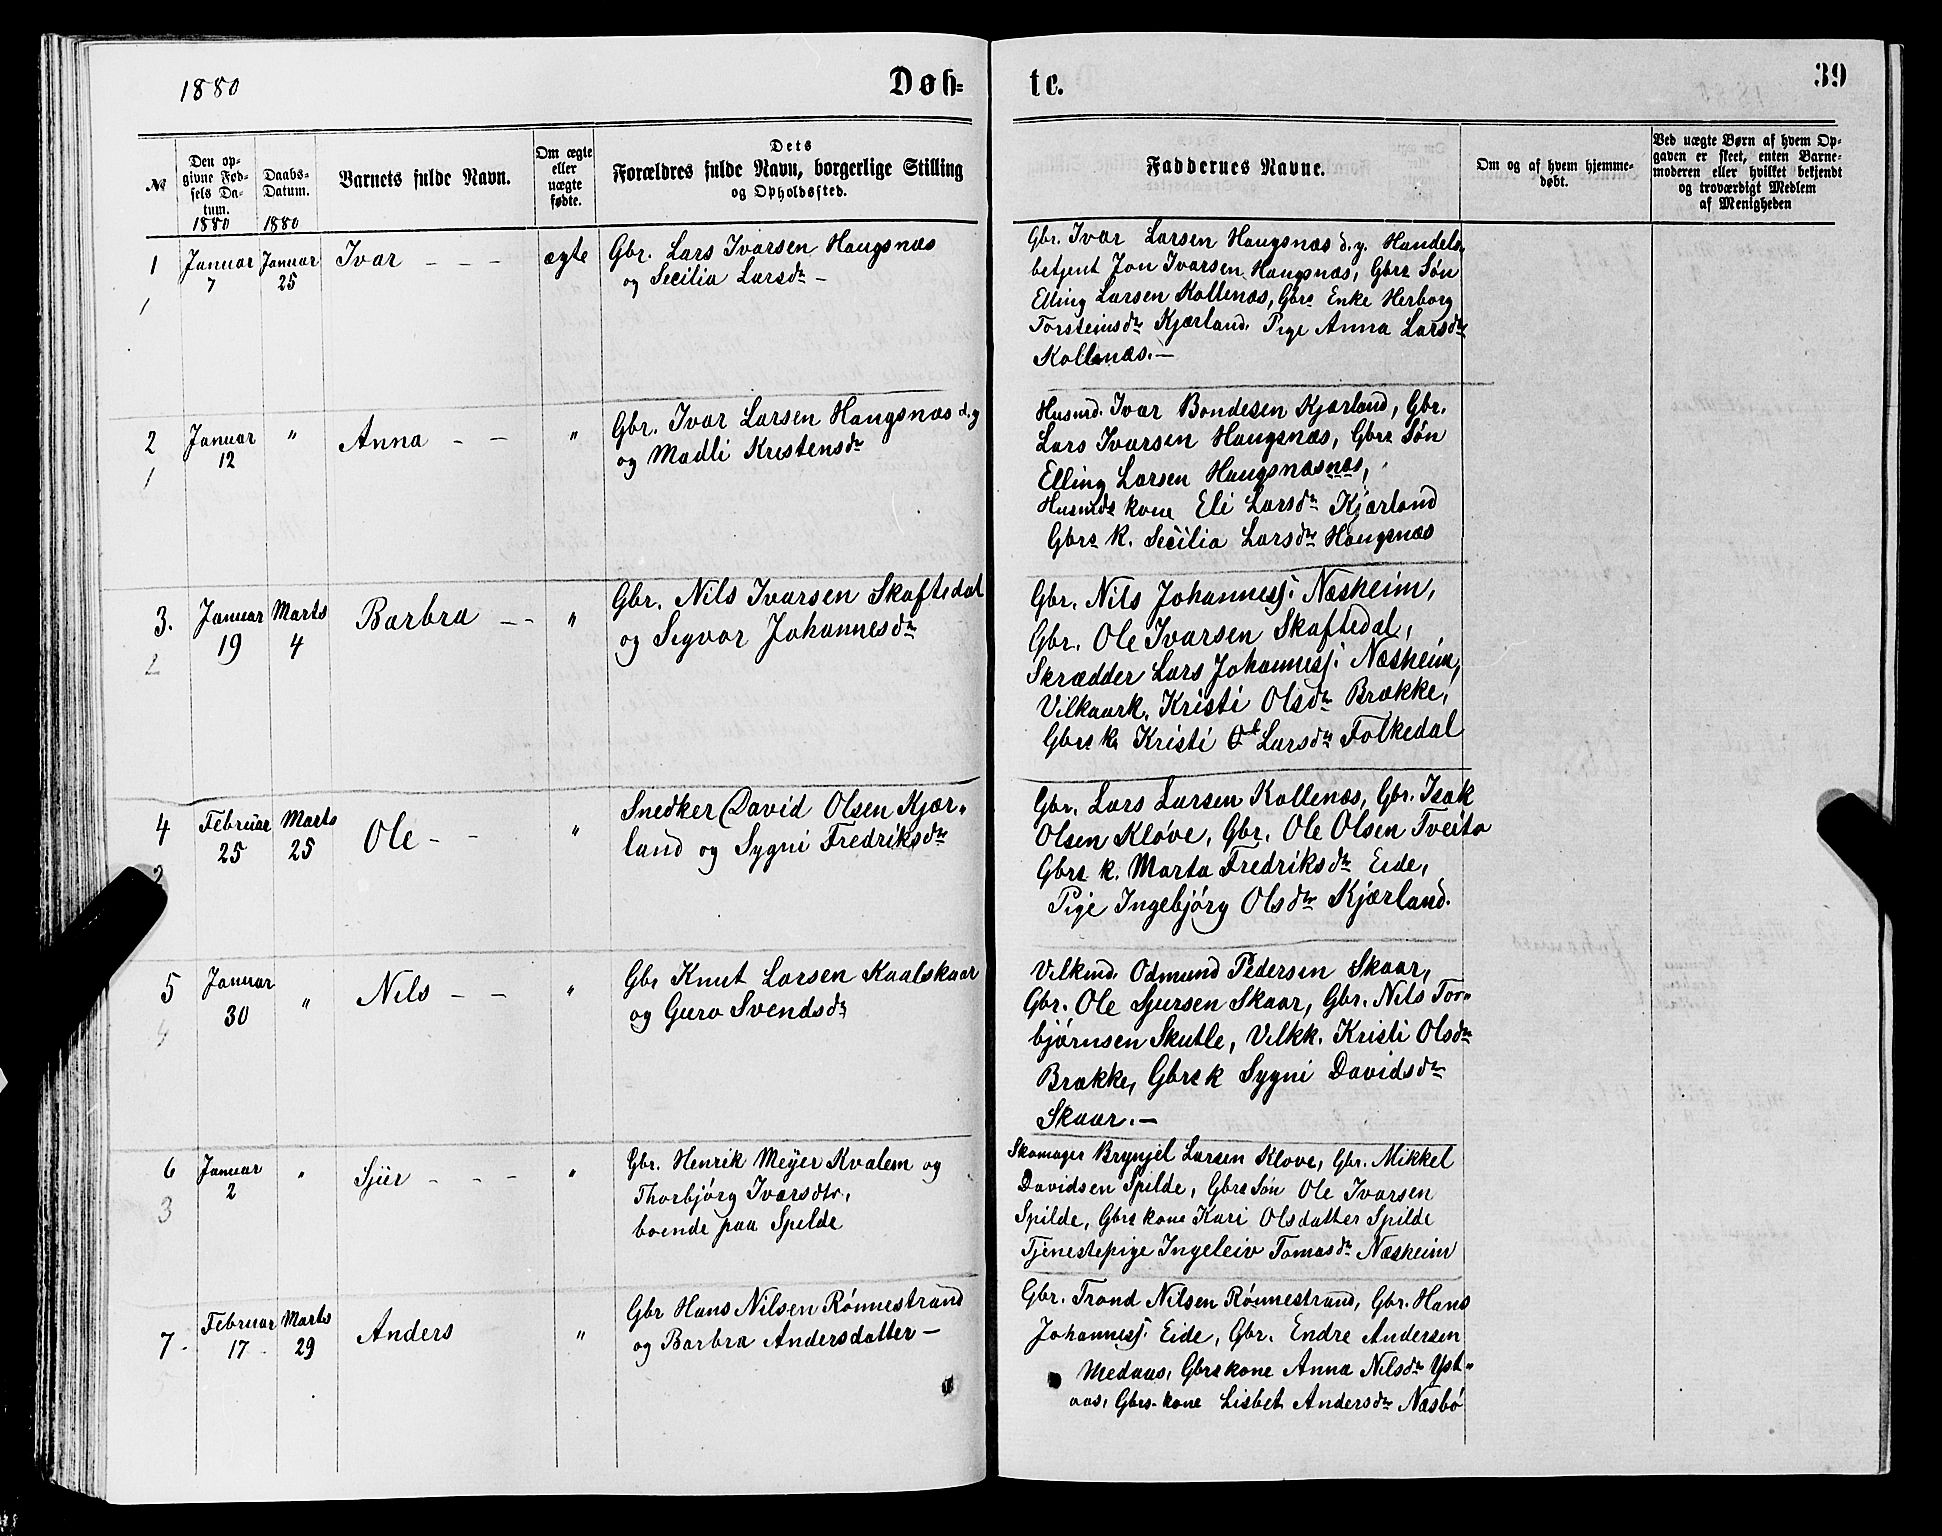 1880
Døb=
te.
39
№
Den op-
givne Fød-
sels Da-
tum.
1880
Daabs-
Datum.
1880
Barnets fulde Navn.
Om ægte
eller
uægte
fødte.
Dets
Forældres fulde Navn, borgerlige Stilling
og Opholdssted.
Faddernes Navne.
Om og af hvem hjemme-
døbt.
Ved uægte Børn af hvem Op-
gaven er skeet, enten Barne-
moderen eller hvilket bekjendt
og troværdigt Medlem
af Menigheden
1
1
Januar
7
Januar
25
Ivar - - -
ægte
Gbr. Lars Ivarsen Haugsnæs
og Secilia Larsdr -
Gbr. Ivar Larsen Haugsnæs d. y. Handels-
betjent Jon Ivarsen Haugsnæs, Gbrs Søn
Elling Larsen Kollenæs, Gbrs Enke Herborg
Torsteinsdr Kjærland. Pige Anna Larsdr
Kollenæs. —
2
1
Januar
12
"
Anna - -
"
Gbr. Ivar Larsen Haugsnæs d. y
og Madli Kristensdr
Husmd. Ivar Bondesen Kjærland, Gbr.
Lars Ivarsen Haugsnæs, Gbrs Søn
Elling Larsen Haugsnæsnæs,
Husmds kone Eli Larsdr Kjærland
Gbrs K. Secilia Larsdr Haugsnæs
3.
2
Januar
19
Marts
4
Barbra - -
"
Gbr. Nils Ivarsen Skaftedal
og Sigvor Johannesdr
Gbr. Nils Johannessj. Næsheim,
Gbr. Ole Ivarsen Skaftedal,
Skrædder Lars Johannessj. Næsheim,
Vilkaark. Kristi Olsdr Brække,
Gbrs k. Kristi Larsdr Folkedal
4
2
Februar
25
Marts
25
Ole - -
"
Snedker David Olsen Kjær-
land og Sygni Fredriksdr
Gbr. Lars Larsen Kollenæs, Gbr. Isak
Olsen Kløve, Gbr. Ole Olsen Tveito
Gbrs k. Marta Fredriksdr Eide,
Pige Ingebjørg Olsdr Kjærland.
5
4
Januar
30
"
Nils - -
"
Gbr Knut Larsen Kaalskaar
og Guro Svendsdr
Vilkmd. Odmund Pedersen Skaar,
Gbr. Ole Sjursen Skaar, Gbr. Nils Tor-
bjørnsen Skutle, Vilkk. Kristi Olsdr
Brække, Gbrs k Sygni Davidsdr
Skaar. —
6
3
Januar
2
"
Sjur - - -
"
Gbr. Henrik Meyer Kvalem og
Thorbjørg Ivarsdtr.
boende paa Spilde
Skomager Brynjel Larsen Kløve, Gbr. Mikkel
Davidsen Spilde, Gbrs Søn Ole Ivarsen
Spilde, Gbrs kone Kari Olsdatter Spilde
Tjenestepige Ingeleiv Tomasdr Næsheim
7.
Februar
17
Marts
29
Anders
"
Gbr Hans Nilsen Rønnestrand
og Barbra Andersdatter —
Gbr. Trond Nilsen Rønnestrand, Gbr. Hans
Johannessj. Eide, Gbr. Endre Andersen
Medaas, Gbrs kone Anna Nilsdr Yst-
aas, Gbrs. kone Lisbet Andersdr Næsbø